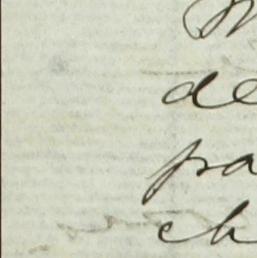 de
pa
ch